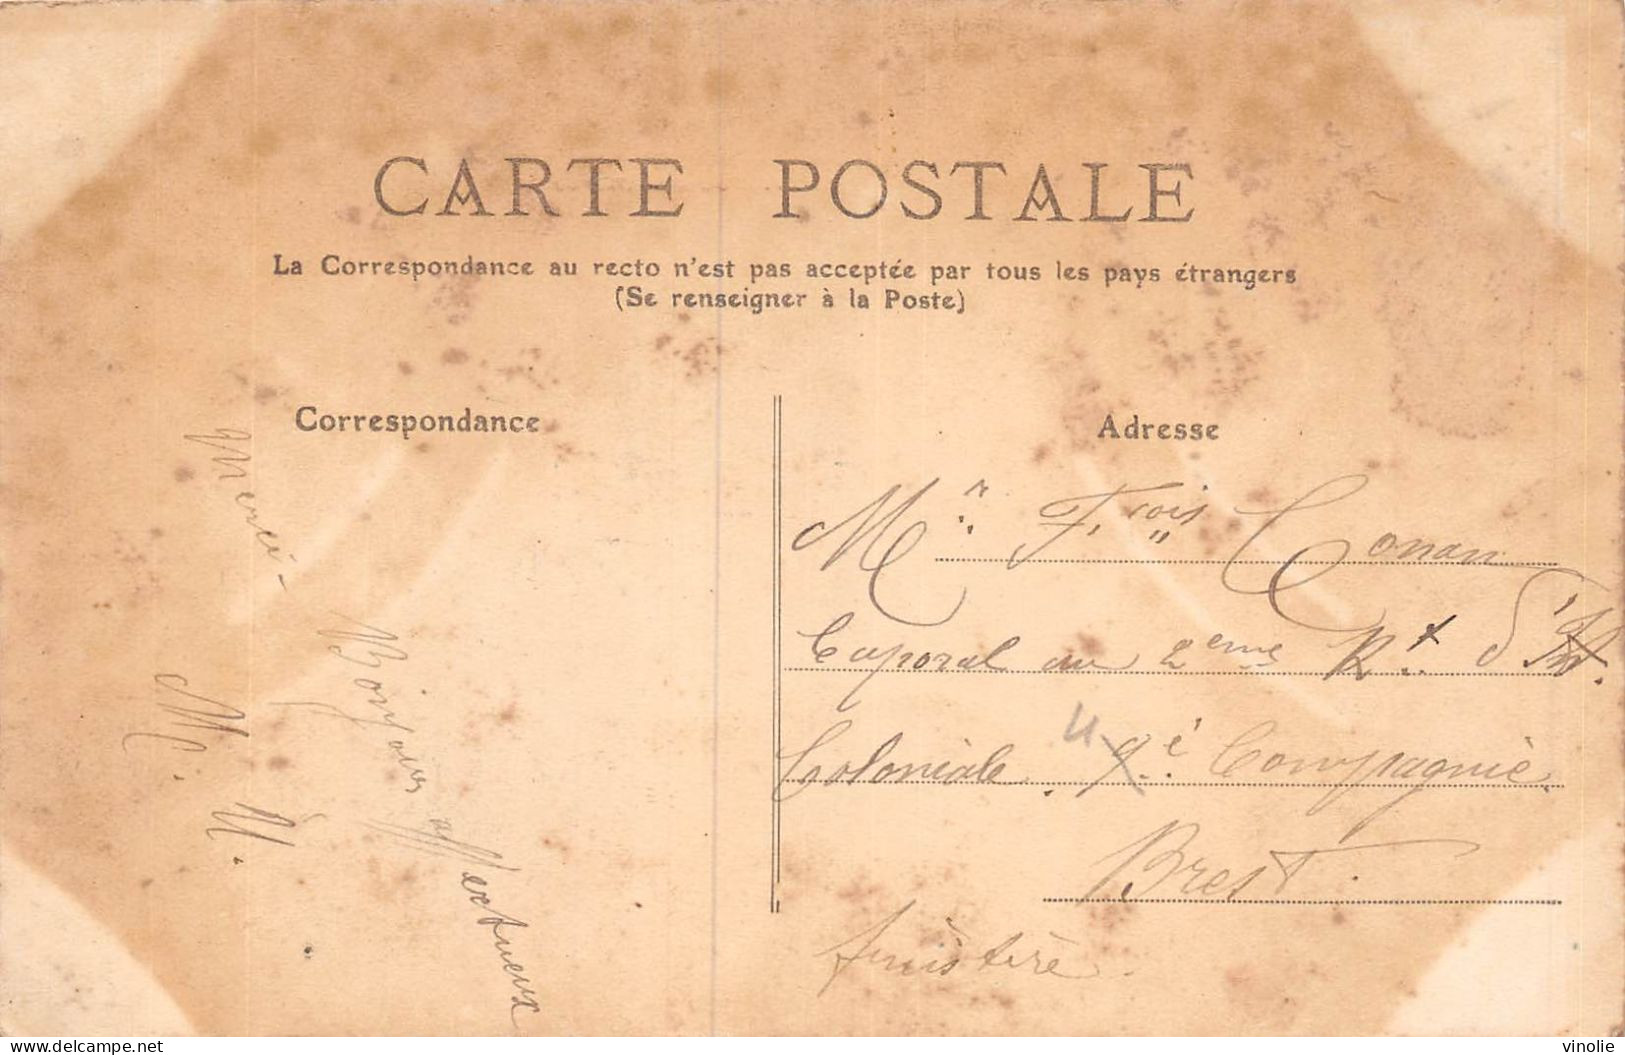 CARTE POSTALE
La Correspondance au recto n'est pas acceptée par tous les pays étrangers
(Se renseigner à la Poste)
Correspondance
Merci -
Bonjour affectueux
M. M.
Adresse
Mr. F.rois Conan
Caporal au 2eme Rt d'Inf.
Coloniale. 4 9.é Compagnie.
Brest.
finistère.
delcampe.net
vinolie